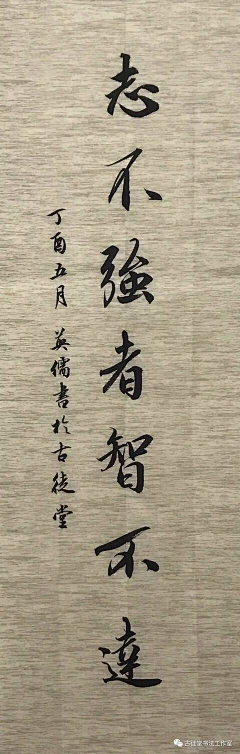 志不強者智不達
丁酉五月 英儒書於古徒堂
古徒堂书法工作室